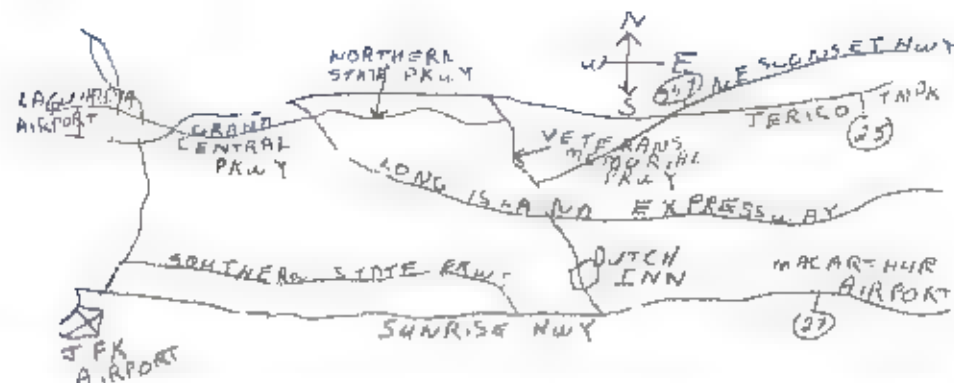 N
W
E
S
NORTHERN
STATE PKWY
NESCONSET HWY
347
LAGUARDIA
AIRPORT
GRAND
CENTRAL
PKWY
JERICO TNPK
25
VETERANS
MEMORIAL
PKWY
LONG ISLAND EXPRESSWAY
SOUTHERN STATE PKWY
DUTCH
INN
MACARTHUR
AIRPORT
27
SUNRISE HWY
JFK
AIRPORT